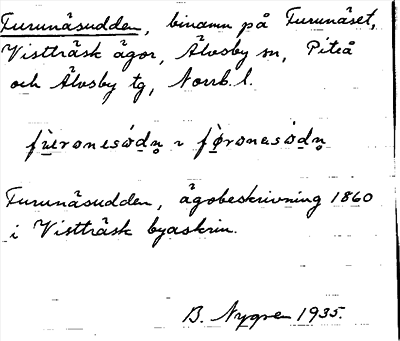 Furunäsudden, binamn på Furunäset,
Vistträsk ägor, Älvsby sn, Piteå
och Älvsby tg, Norrb. l.
Furunäsudden, ägobeskrivning 1860
i Vistträsk byaskrin.
B. Nygren 1935.